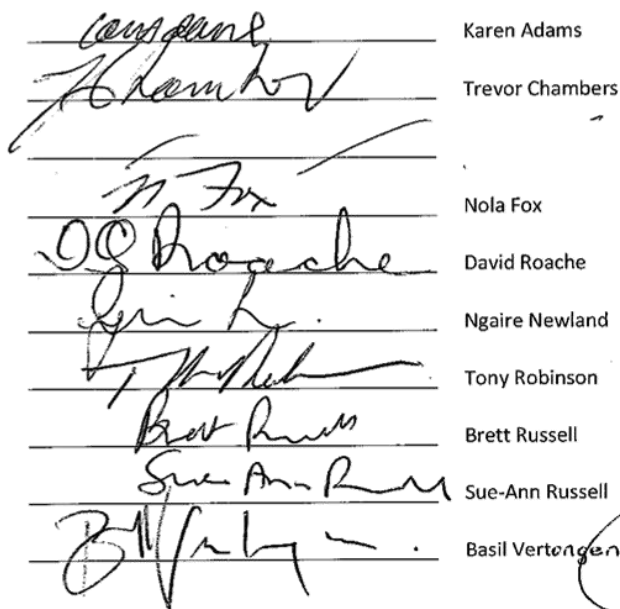 Karen Adams
T Chambers Trevor Chambers
N Fox Nola Fox
D G Roache David Roache
Ngaire Newland
Tony Robinson
Brett Russell Brett Russell
Sue-Ann Russell Sue-Ann Russell
Basil Vertongen